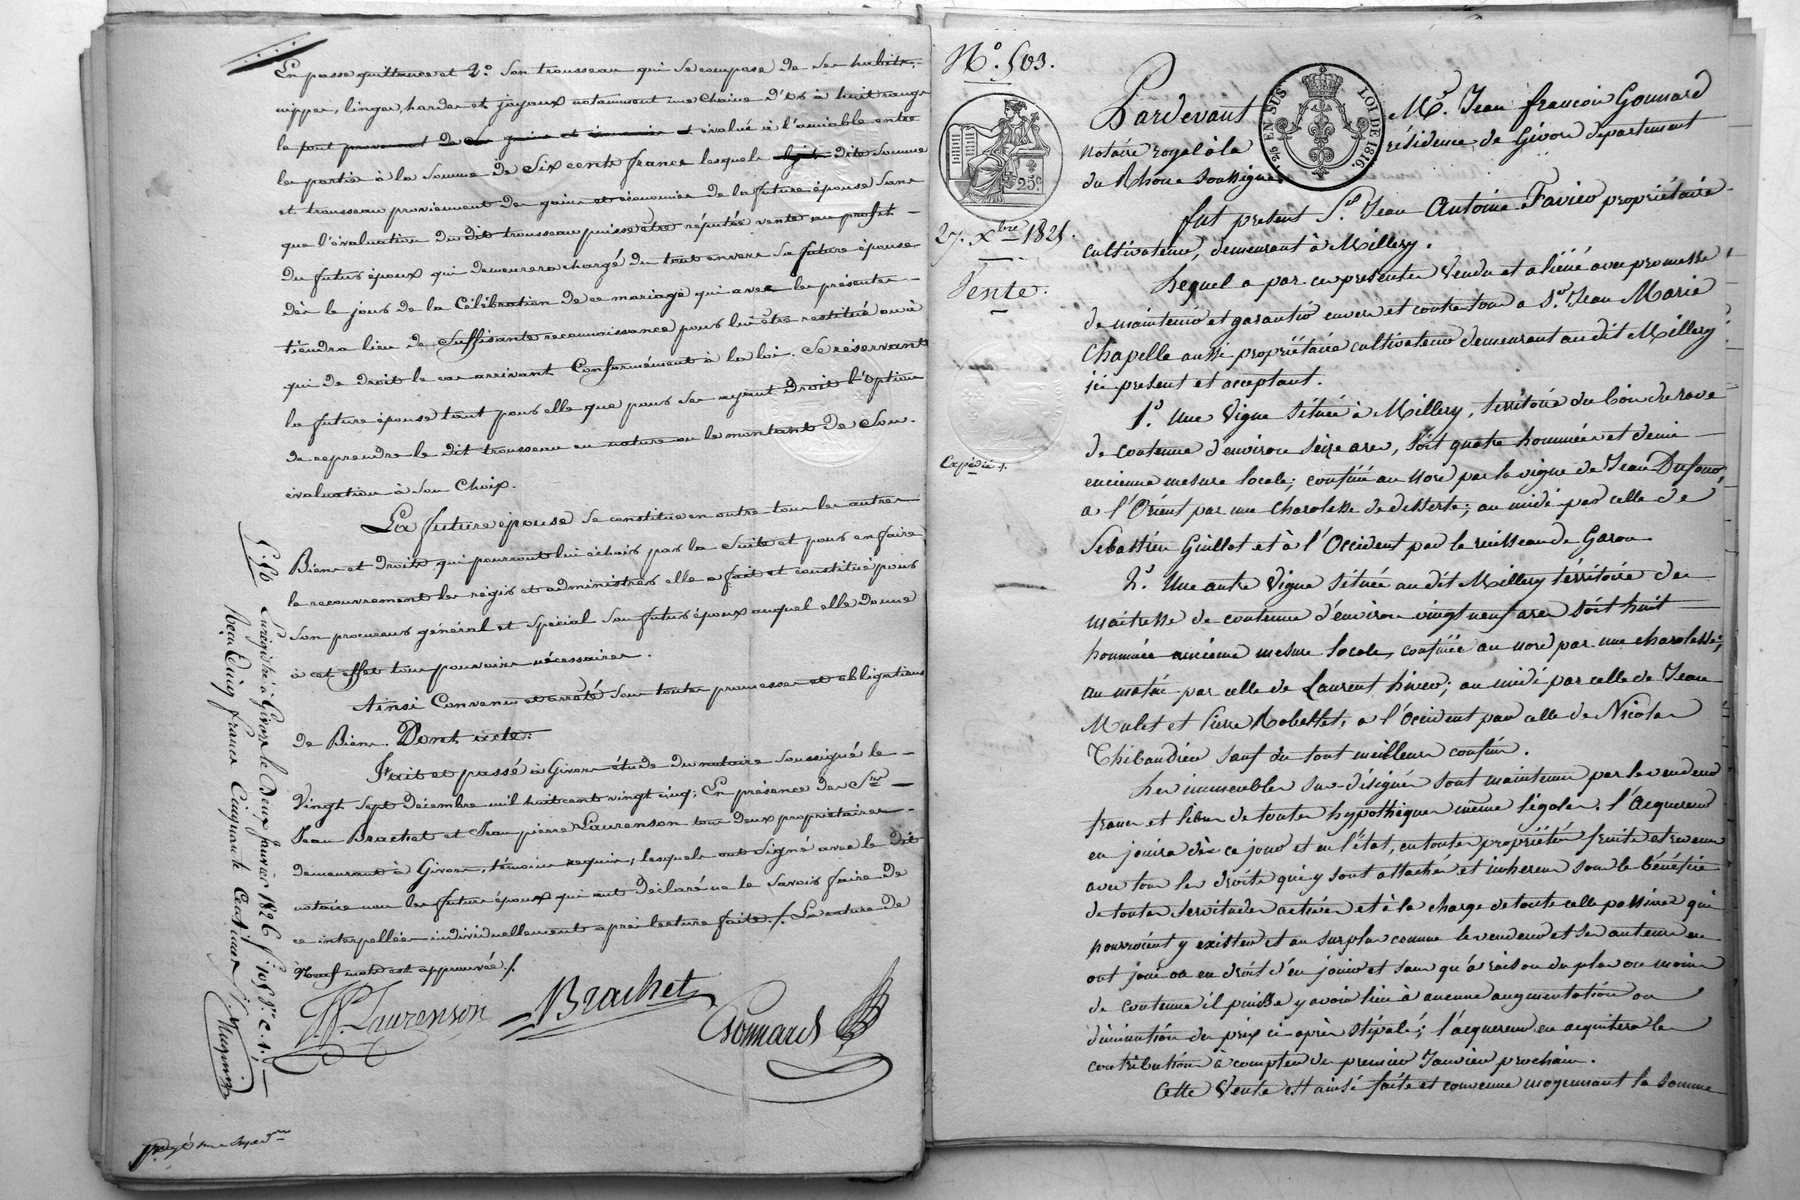 En passe quittance et 2.° Son trousseau qui se compose de ses habits,
nippes, linges, hardes et joyaux notamment une chaine d'or à huit rangs
le tout provenant de Ses gains et économies et évalué à l'amiable entre
les parties à la Somme de Six cents francs lesquels dite Somme
et trousseau proviennent des gains et économies de la future épouse Sans
que l'évaluation du dit trousseau puisse être réputée vente au profit
du futur époux qui demeurera chargé du tout envers Sa future épouse
dès le jour de la Célébration de ce mariage qui avec les présentes
tiendra lieu de Suffisante reconnaissance pour lui être restitué ou à
qui de droit le cas arrivant Conformément à la loi. Se réservant
la future épouse tant pour elle que pour Ses ayant Droit l'Option
de reprendre le dit trousseau en nature ou le montant de Son
évaluation à Son Choix.
La future épouse Se constitue en outre tous les autres
Biens et Droits qui pourront lui échoir par la Suite et pour en faire
le recouvrement les régir et administrer elle a fait et constitué pour
Son procureur général et Spécial Son futur époux auquel elle donne
à cet effet tous pouvoirs nécessaires.
Ainsi Convenu et arrêté Sous toutes promesses et obligations
de Biens. Dont acte.
Fait et passé à Givors étude du notaire Soussigné le
Vingt Sept décembre mil huit cent vingt cinq; En présence des Srs
Jean Brachet et Jean pierre Laurenson tous deux propriétaires
demeurant à Givors, témoins requis; lesquels ont Signé avec le dit
notaire non les futurs époux qui ont déclaré ne le Savoir faire de
ce interpellés individuellement après lecture faite./. La rature de
Neuf mots est approuvée./.
JP. Laurenson Brachet Gonnard
Enregistré à Givors le Deux Janvier 1826 f.° 105 V.° C. 1.
Reçu Cinq francs Cinquante Centimes
N.° 503.
25 c
27. Xbre 1825.
Vente.
Expédié /.
26 EN SUS LOI DE 1816.
Pardevant M.e Jean françois Gonnard
notaire royal à la résidence de Givors département
du Rhône Soussigné
fut présent S.r Jean Antoine Favier propriétaire
cultivateur, demeurant à Millery.
Lequel a par ces présentes Vendu et aliéné avec promesse
de maintenir et garantir envers et contre tous a S.r Jean Marie
Chapelle aussi propriétaire cultivateur demeurant au dit Millery
ici présent et acceptant.
1.° Une Vigne Située à Millery, territoire du
de contenue d'environ Seize ares, Soit quatre hommées et demie
ancienne mesure locale; confinée au nord par la vigne de Jean Dufour,
a l'Orient par une Charolesse de desserte; au midi par celle de
Sebastien Guillot et à l'Occident par le ruisseau de Garon
2.° Une autre Vigne Située au dit Millery territoire de
maitresse de contenue d'environ vingt neuf ares Soit huit
hommées ancienne mesure locale, confinée au nord par une charolesse;
au matin par celle de Laurent; au midi par celle de Jean
Mulet et Pierre Robellet, a l'Occident par celle de Nicolas
Thibaudier Sauf de tout meilleurs confins.
Les immeubles Sus-désignés Sont maintenus par le vendeur
francs et libres de toutes hypothèques même légales. l'acquereur
en jouira dès ce jour et en l'état, en toute propriété fruits et revenus
avec tous les droits qui y sont attachés et inhérens Sous le bénéfice
de toutes Servitudes actives et à la charge de toutes celles passives qui
pourroient y exister et au surplus comme le vendeur et Ses auteurs en
ont joui ou eu droit d'en jouir et Sans qu'à raison du plus ou moins
de contenue il puisse y avoir lieu à aucune augmentation ou
diminution du prix ci-après stipulé; l'acquereur en acquittera les
contributions à compter du premier Janvier prochain.
Cette Vente est ainsi faite et convenue moyennant la Somme